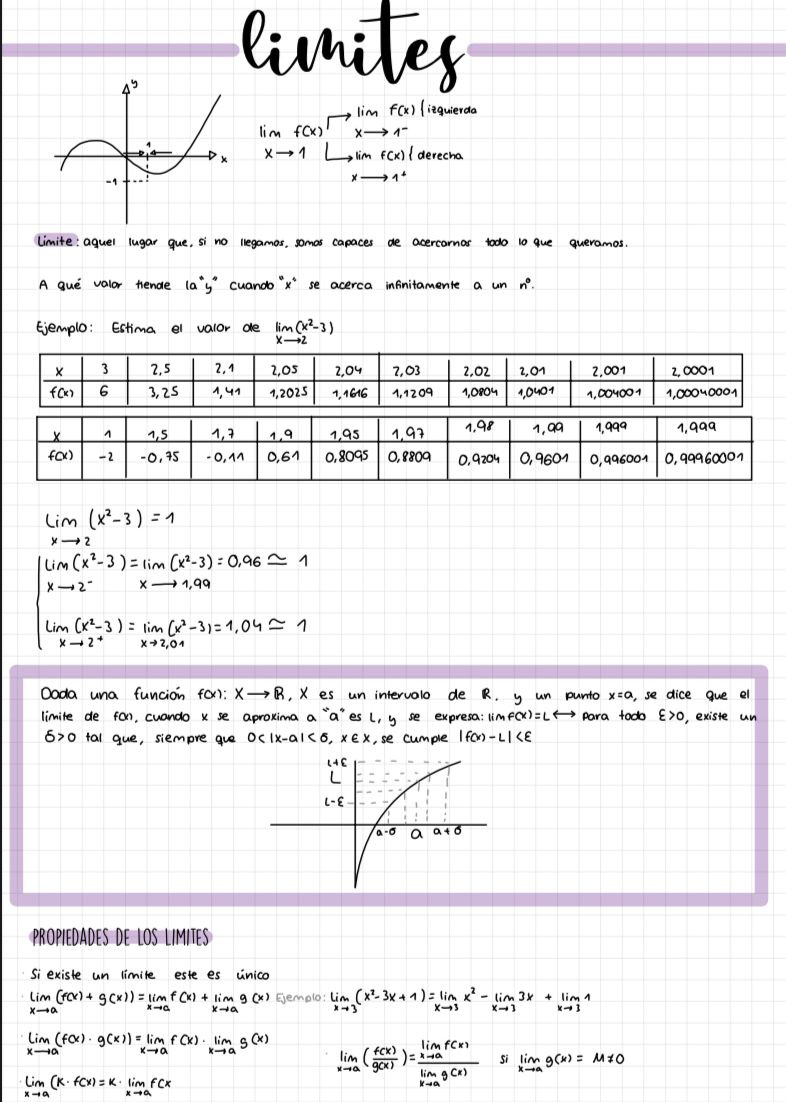 limites
y
1
x
-1
lim f(x)
x→1
lim f(x) { izquierda
x→1⁻
lim f(x) { derecha
x→1⁺
Límite: aquel lugar que, si no llegamos, somos capaces de acercarnos todo lo que queramos.
A qué valor tiende la "y" cuando "x" se acerca infinitamente a un nº.
Ejemplo: Estima el valor de lim (x²-3)
x→2
x 3 2,5 2,1 2,05 2,04 2,03 2,02 2,01 2,001 2,0001
f(x) 6 3,25 1,41 1,2025 1,1616 1,1209 1,0804 1,0401 1,004001 1,00040001
x 1 1,5 1,7 1,9 1,95 1,97 1,98 1,99 1,999 1,999
f(x) -2 -0,75 -0,11 0,61 0,8095 0,8809 0,9204 0,9601 0,996001 0,99960001
Lim (x²-3) = 1
x→2
Lim (x²-3) = lim (x²-3) = 0,96 ≃ 1
x→2⁻ x→1,99
Lim (x²-3) = lim (x²-3) = 1,04 ≃ 1
x→2⁺ x→2,01
Dada una función f(x): X→ℝ, X es un intervalo de ℝ, y un punto x=a, se dice que el
límite de f(x), cuando x se aproxima a "a" es L, y se expresa: lim f(x)=L ↔ para todo ε>0, existe un
δ>0 tal que, siempre que 0<|x-a|<δ, x∈X, se cumple |f(x)-L|<ε
L+ε
L
L-ε
a-δ a a+δ
PROPIEDADES DE LOS LIMITES
Si existe un límite este es único
Lim (f(x) + g(x)) = lim f(x) + lim g(x) Ejemplo: Lim (x²-3x+1) = lim x² - lim 3x + lim 1
x→a x→a x→a x→3 x→3 x→3 x→3
Lim (f(x) · g(x)) = lim f(x) · lim g(x)
x→a x→a x→a
lim (f(x)/g(x)) = lim f(x) / lim g(x) si lim g(x) = M≠0
x→a x→a x→a x→a
Lim (K · f(x) = K · lim f(x
x→a x→a